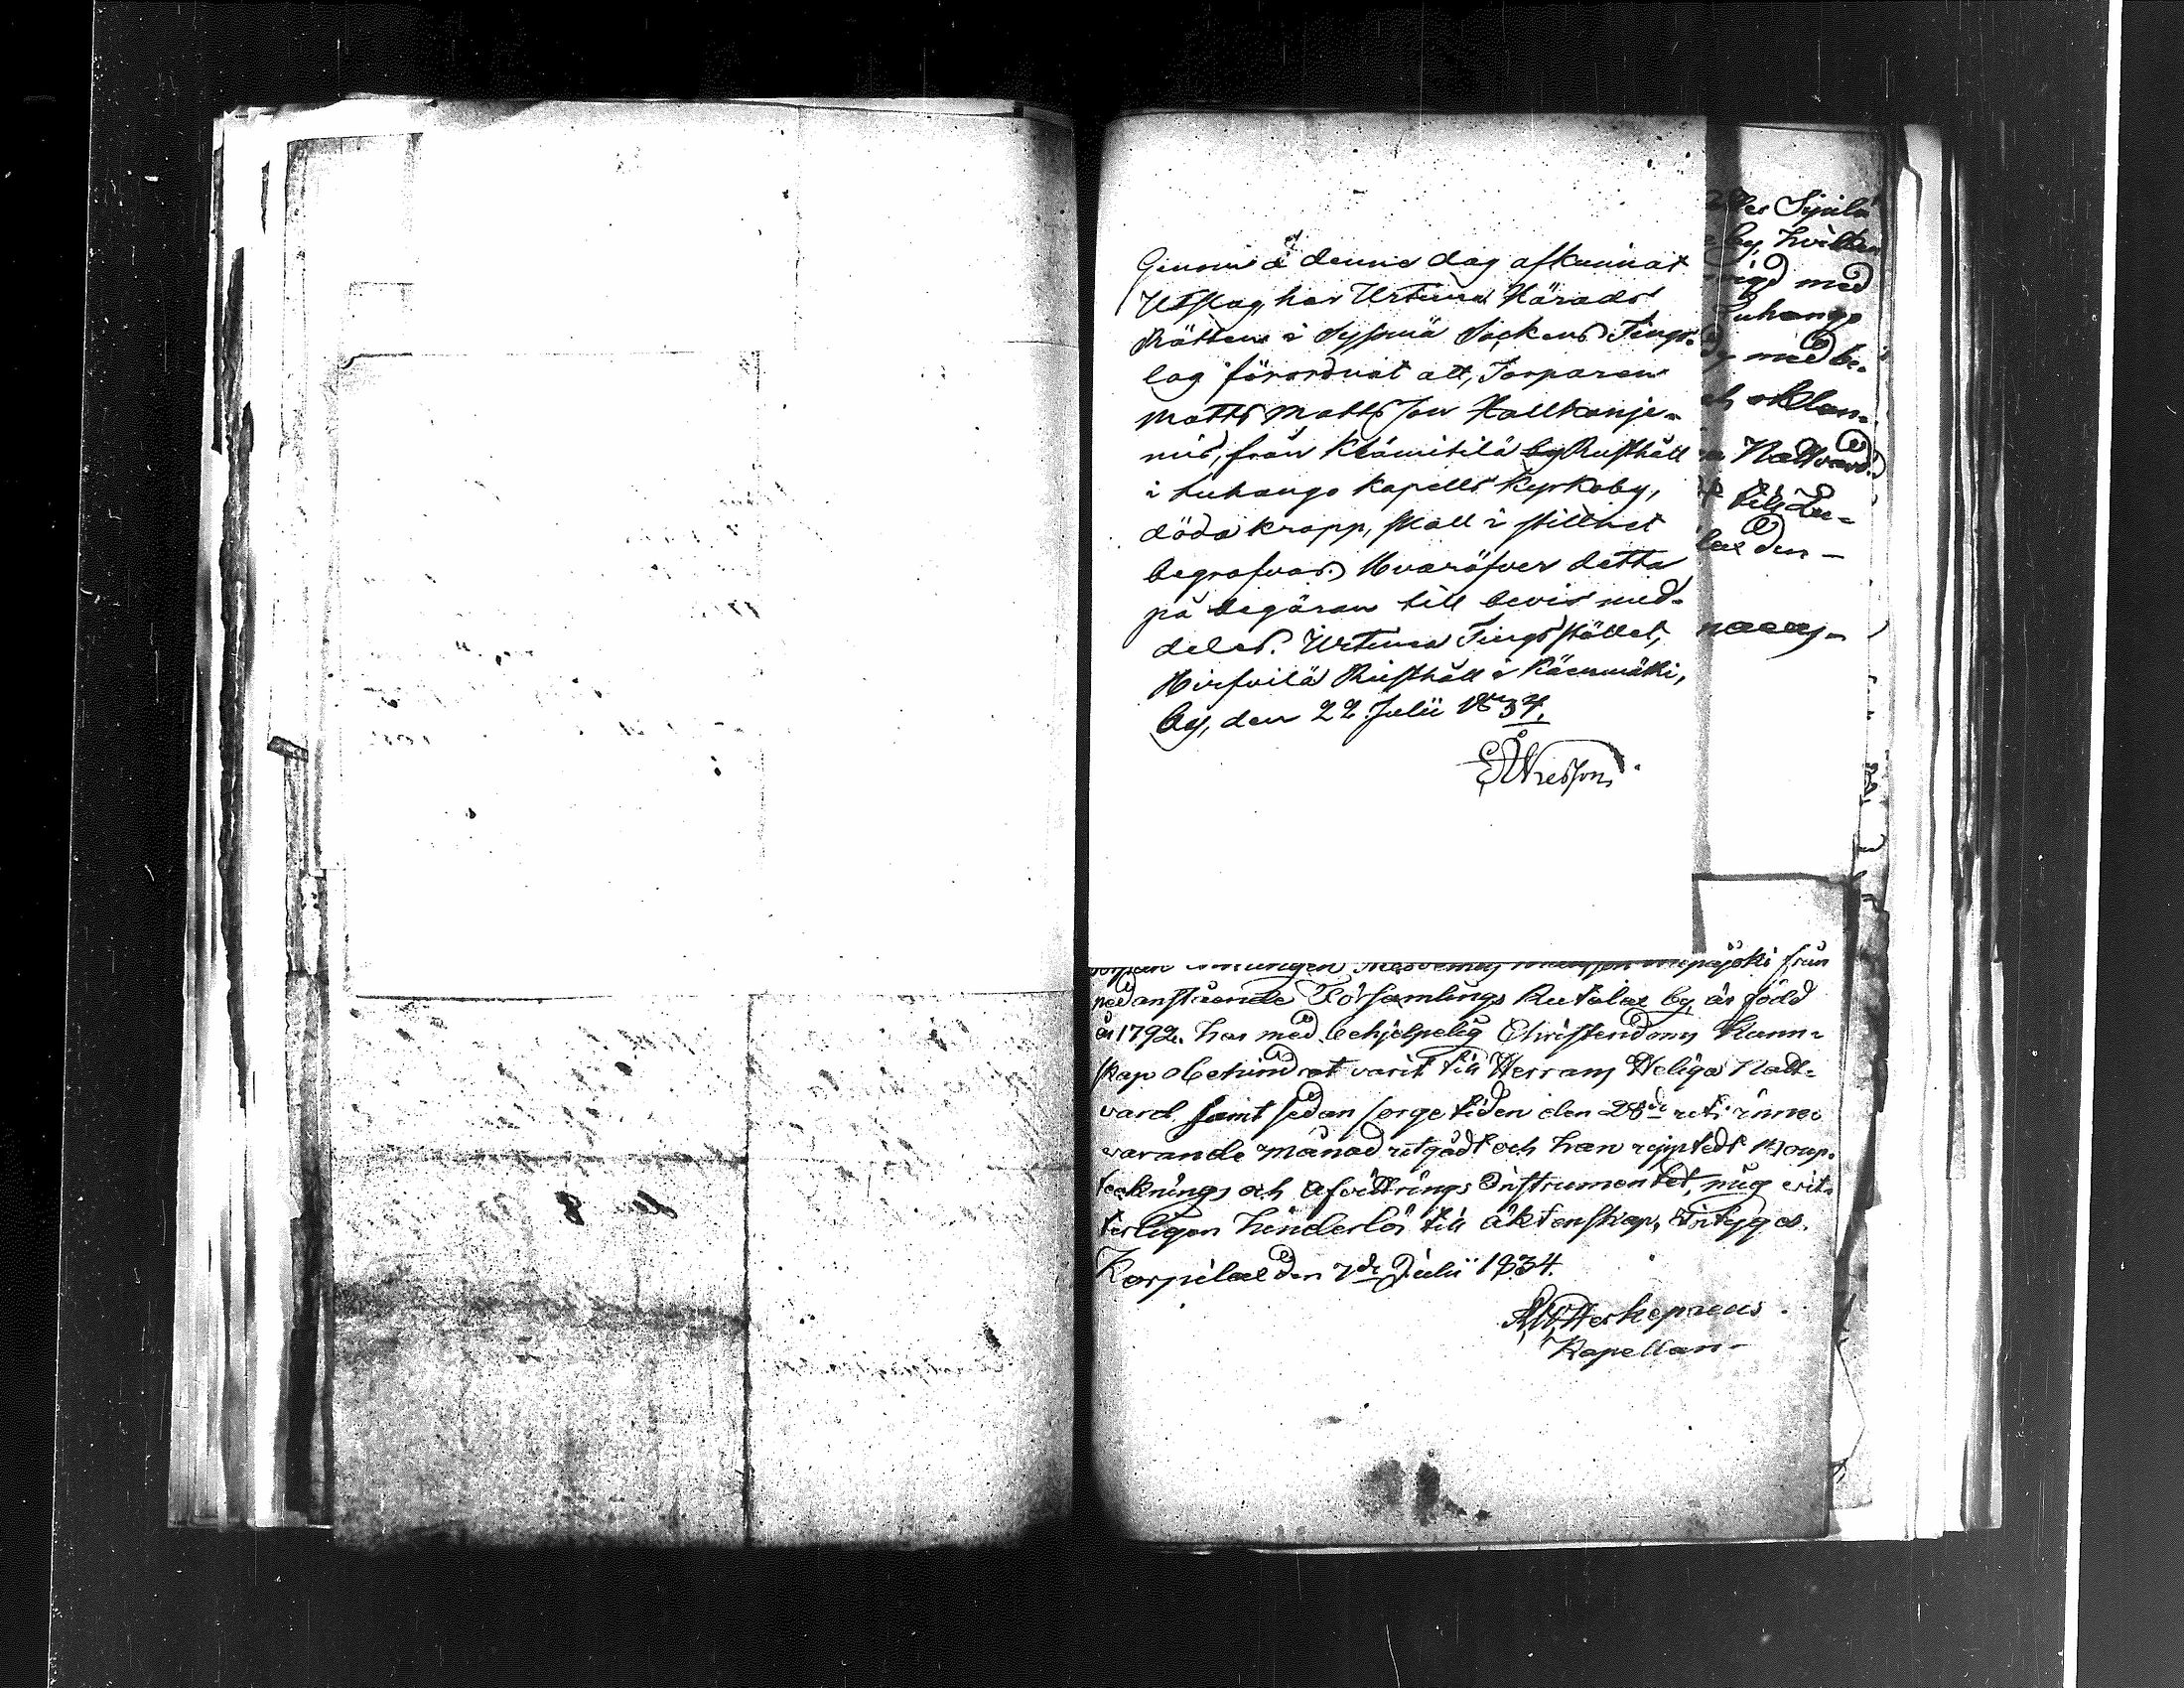 Genom å denne dag afkunnat
Utslag, har Urtima Härads
Rätten i Sysmä Sockens Tings-
lag förordnat att, Torparen
Matts Mattsson Hallkanje-
mis, från Klämitilä by Rusthåll
i Luhango Kapells Kyrkoby,
döda kropp, skall i stillhet
begrafvas. Hvaröfver detta
på begäran till bevis med-
delas. Urtima Tingsstället,
Hirfvilä Rusthåll i Käenmäki,
by, den 22 Julii 1834.
Sipilä
by, hvilken
med
Luhango
med be-
Nattvard
till Lu-
den -
från
nedanstående Församlings Rutalax by, är född
år 1792. har med behjelpelig Christendoms Kunn-
skap obehindrat varit till Herrans Heliga Natt-
vard samt sedan sorgetiden den 28de uti inne
varande månad utgådt och han upptedt Boupp-
tecknings och Afvittrings Instrumentet, mig vit-
terligen hinderlös till äktenskap, intygas.
Korpilax den 7de Julii 1834.
Kapellan